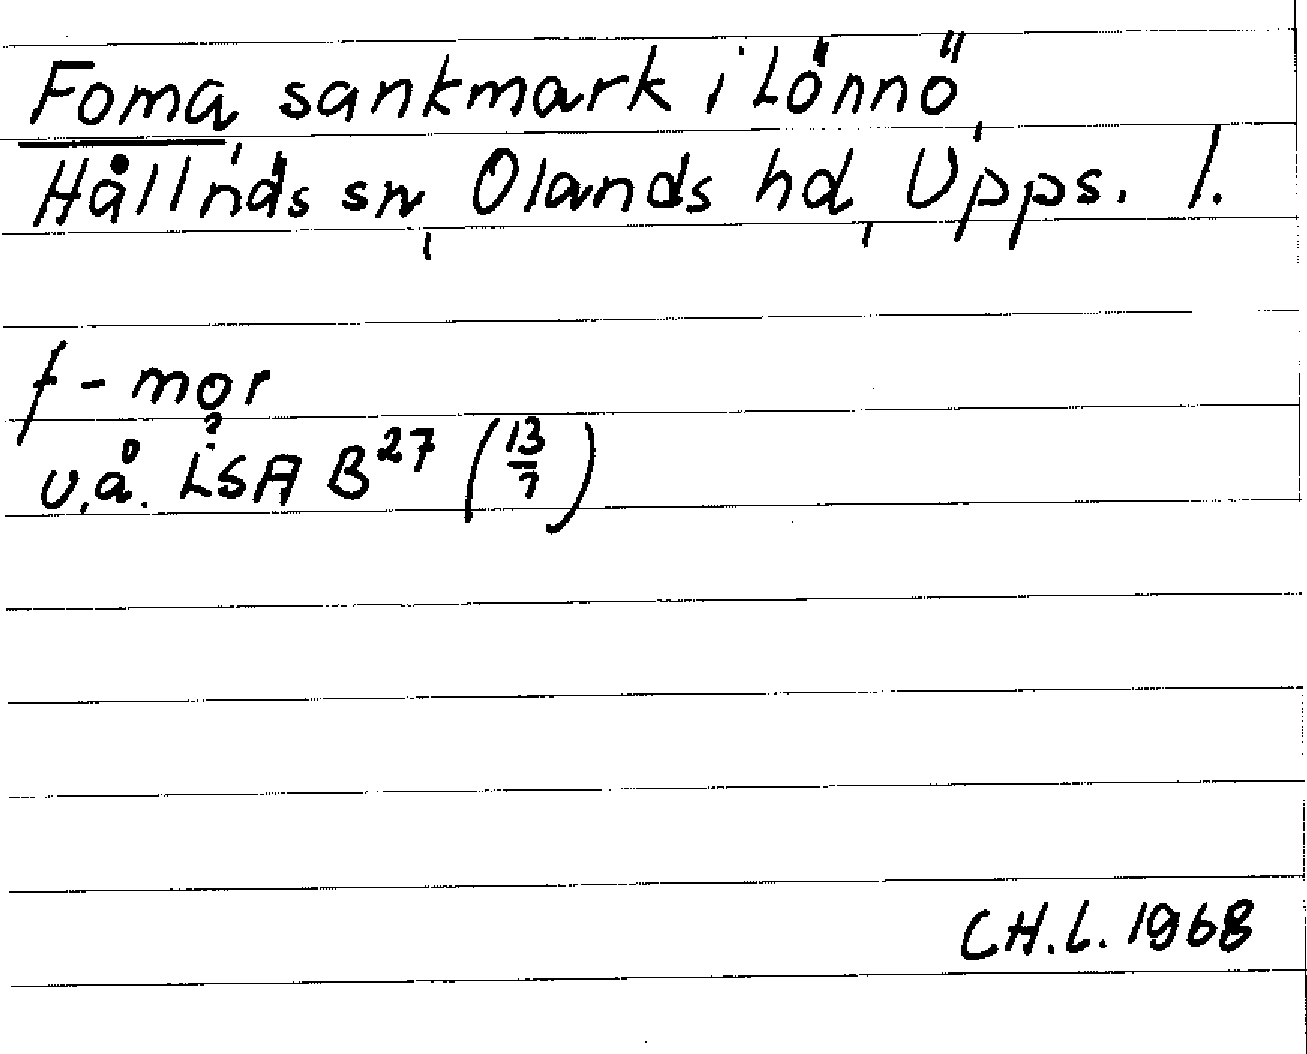 Foma, sankmark i Lönnö,
Hållnäs sn, Olands hd, Upps. l.
f-mor
?
u.å. LSA B27 (13/7)
CH.L. 1968